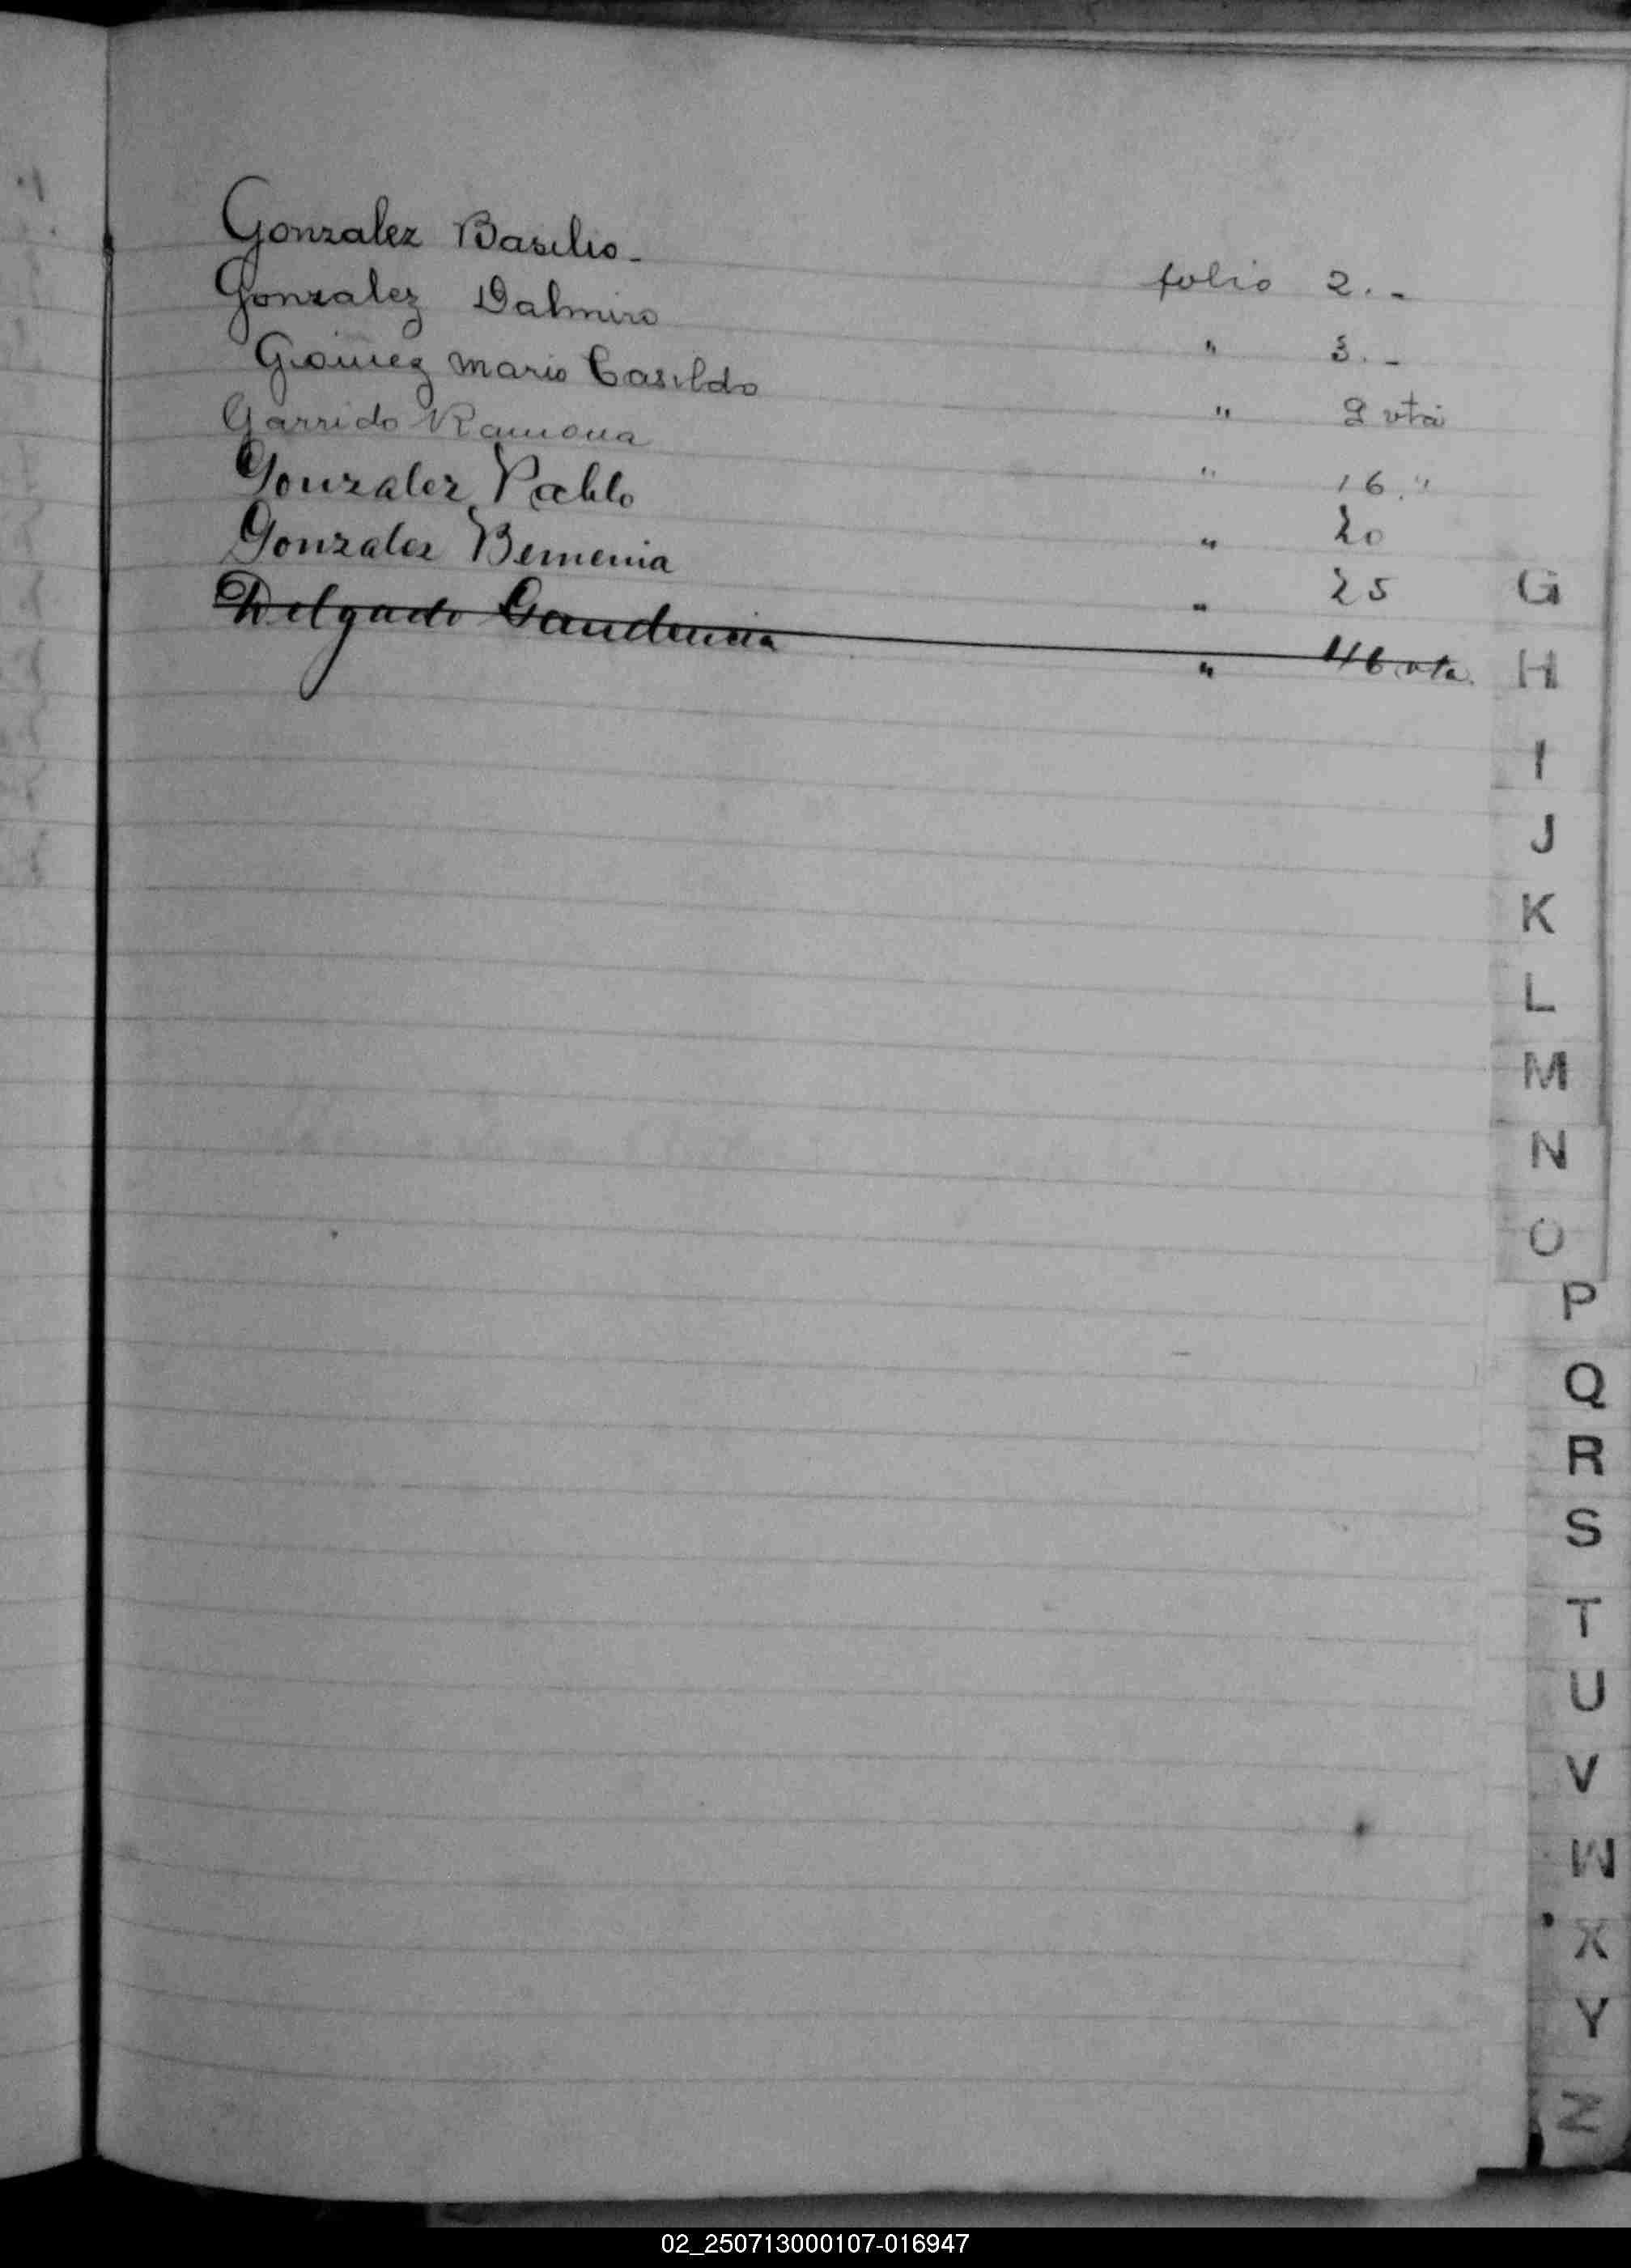 Gonzalez Basilio - folio 2. -
Gonzalez Dalmiro " 3. -
Gomez Mario Casildo " 9 vta
Garrido Ramona " 16. "
Gonzalez Pablo " 20
Gonzalez " 25
Delgado Gaudencia " 46 vta.
G
H
I
J
K
L
M
N
O
P
Q
R
S
T
U
V
W
X
Y
Z
02_250713000107-016947